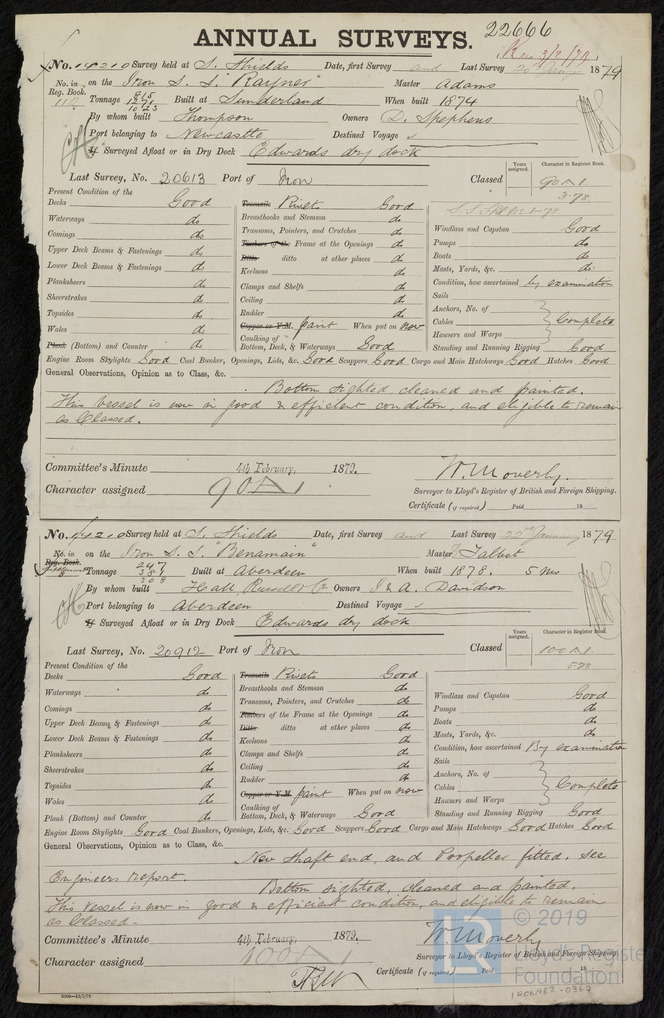 22666
ANNUAL SURVEYS.
Rec 3/2/79
No. 14210 Survey held at S. Shields Date, first Survey and Last Survey 1879
No. in Reg. Book. 112 on the Iron S. S. "Rayner" Master Adams
Tonnage 815 1271 1023 Built at Sunderland When built 1874
By whom built Thompson Owners D. Stephens
Port belonging to Newcastle Destined Voyage
If Surveyed Afloat or in Dry Dock Edwards dry dock
Last Survey, No. 20613 Port of Iron Classed Years assigned. Character in Register Book. 90A1 3.78
Present Condition of the
Decks Good
Waterways do
Comings do
Upper Deck Beams & Fastenings do
Lower Deck Beams & Fastenings do
Planksheers do
Sheerstrakes do
Topsides do
Wales do
Plank (Bottom) and Counter do
Treenails Rivets Good
Breasthooks and Stemson do
Transoms, Pointers, and Crutches do
Timbers of the Frame at the Openings do
Ditto ditto at other places do
Keelsons do
Clamps and Shelfs do
Ceiling do
Rudder do
Copper or Y.M. paint When put on now
Caulking of Bottom, Deck, & Waterways Good
Windlass and Capstan Good
Pumps do
Boats do
Masts, Yards, &c. do
Condition, how ascertained by examination
Sails
Anchors, No. of
Cables Complete
Hawsers and Warps
Standing and Running Rigging Good
Engine Room Skylights Good Coal Bunker, Openings, Lids, &c. Good Scuppers Good Cargo and Main Hatchways Good Hatches Good
General Observations, Opinion as to Class, &c.
Bottom sighted cleaned and painted.
This Vessel is now in good & efficient condition, and eligible to remain
as Classed.
Committee's Minute 4th February, 1879.
Character assigned 90A1
W. Moverly.
Surveyor to Lloyd's Register of British and Foreign Shipping.
Certificate (if required) Paid 18
No. 14210 Survey held at S. Shields Date, first Survey and Last Survey 22nd January 1879
No. in Reg. Book. on the Iron S. S. "Benamain" Master Talbot
Tonnage 247 351 308 Built at Aberdeen When built 1878. 5 mo
By whom built Hall Russell & Co Owners J & A. Davidson
Port belonging to Aberdeen Destined Voyage
If Surveyed Afloat or in Dry Dock Edwards dry dock
Last Survey, No. 20912 Port of Iron Classed Years assigned. Character in Register Book. 100A1 5.78
Present Condition of the
Decks Good
Waterways do
Comings do
Upper Deck Beams & Fastenings do
Lower Deck Beams & Fastenings do
Planksheers do
Sheerstrakes do
Topsides do
Wales do
Plank (Bottom) and Counter do
Treenails Rivets Good
Breasthooks and Stemson do
Transoms, Pointers, and Crutches do
Timbers of the Frame at the Openings do
Ditto ditto at other places do
Keelsons do
Clamps and Shelfs do
Ceiling do
Rudder do
Copper or Y.M. paint When put on now
Caulking of Bottom, Deck, & Waterways Good
Windlass and Capstan Good
Pumps do
Boats do
Masts, Yards, &c. do
Condition, how ascertained By examination
Sails
Anchors, No. of
Cables Complete
Hawsers and Warps
Standing and Running Rigging Good
Engine Room Skylights Good Coal Bunkers, Openings, Lids, &c. Good Scuppers Good Cargo and Main Hatchways Good Hatches Good
General Observations, Opinion as to Class, &c.
New Shaft end, and Propeller fitted. see
Engineers report.
Bottom sighted, cleaned and painted.
This Vessel is now in good & efficient condition, and eligible to remain
as Classed.
Committee's Minute 4th February, 1879.
Character assigned 100A1
W. Moverly
Surveyor to Lloyd's Register of British and Foreign Shipping.
Certificate (if required) Paid 18
© 2019
Lloyd's Register
Foundation
IRON482-0367